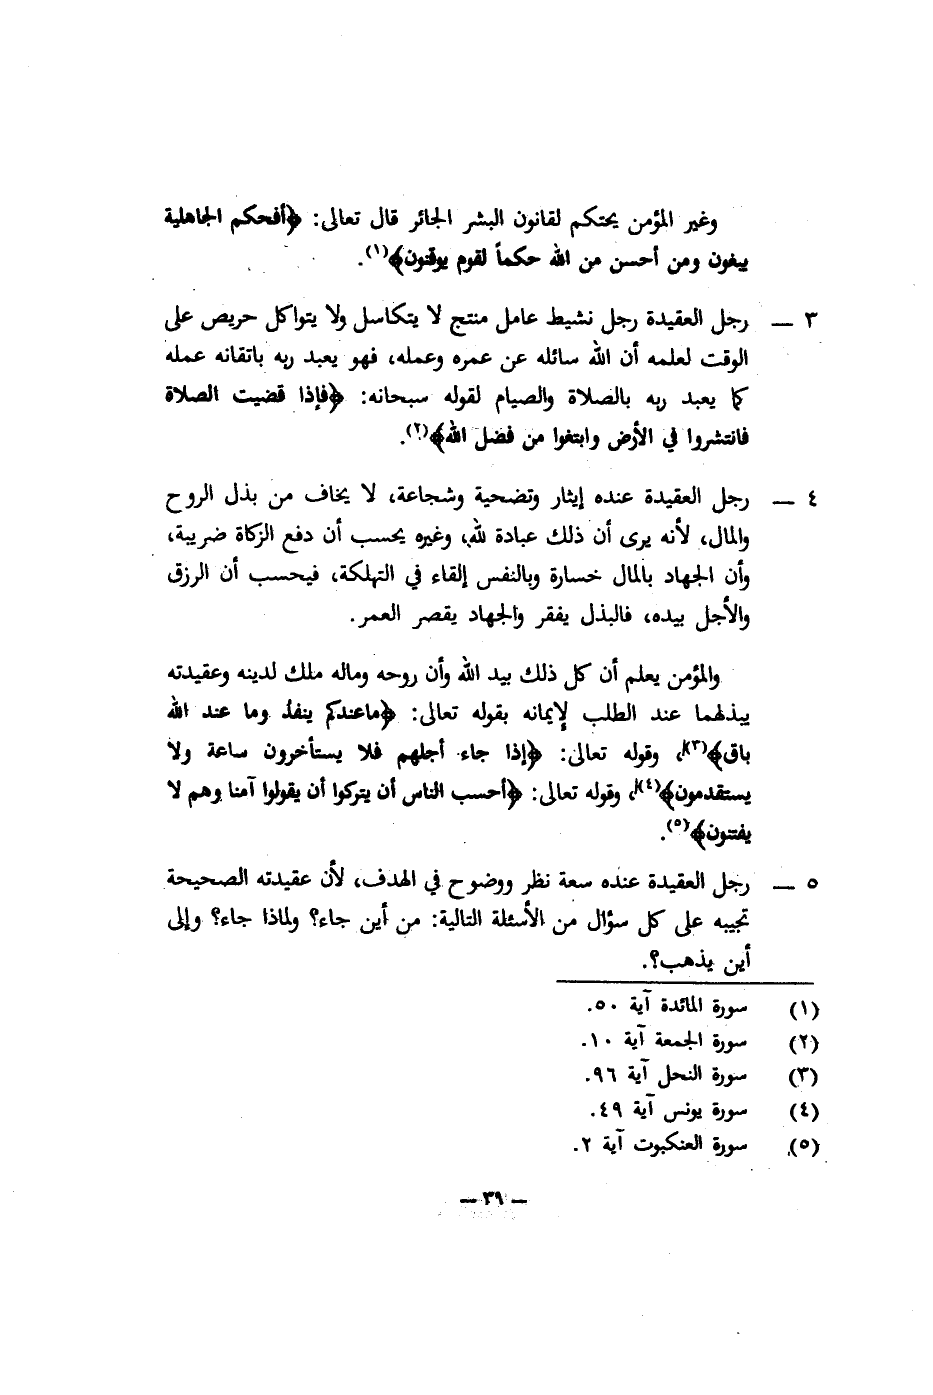 وغير المؤمن يحتكم لقانون البشر الجائر قال تعالى: ﴿أفحكم الجاهلية
يبغون ومن أحسن من الله حكماً لقوم يوقنون﴾(١).
٣ — رجل العقيدة رجل نشيط عامل منتج لا يتكاسل ولا يتواكل حريص على
الوقت لعلمه أن الله سائله عن عمره وعمله، فهو يعبد ربه باتقانه عمله
كما يعبد ربه بالصلاة والصيام لقوله سبحانه: ﴿فإذا قضيت الصلاة
فانتشروا في الأرض وابتغوا من فضل الله﴾(٢).
٤ — رجل العقيدة عنده إيثار وتضحية وشجاعة، لا يخاف من بذل الروح
والمال، لأنه يرى أن ذلك عبادة لله، وغيره يحسب أن دفع الزكاة ضريبة،
وأن الجهاد بالمال خسارة وبالنفس إلقاء في التهلكة، فيحسب أن الرزق
والأجل بيده، فالبذل يفقر والجهاد يقصر العمر.
والمؤمن يعلم أن كل ذلك بيد الله وأن روحه وماله ملك لدينه وعقيدته
يبذلهما عند الطلب لإيمانه بقوله تعالى: ﴿ماعندكم ينفد وما عند الله
باق﴾(٣)، وقوله تعالى: ﴿إذا جاء أجلهم فلا يستأخرون ساعة ولا
يستقدمون﴾(٤)، وقوله تعالى: ﴿أحسب الناس أن يتركوا أن يقولوا آمنا وهم لا
يفتنون﴾(٥).
٥ — رجل العقيدة عنده سعة نظر ووضوح في الهدف، لأن عقيدته الصحيحة
تجيبه على كل سؤال من الأسئلة التالية: من أين جاء؟ ولماذا جاء؟ وإلى
أين يذهب؟.
(١) سورة المائدة آية ٥٠.
(٢) سورة الجمعة آية ١٠.
(٣) سورة النحل آية ٩٦.
(٤) سورة يونس آية ٤٩.
(٥) سورة العنكبوت آية ٢.
— ٣٩ —